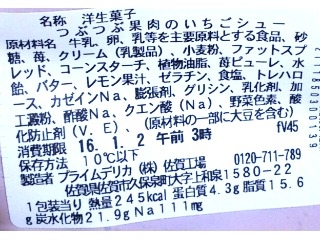 名称 洋生菓子
つぶつぶ果肉のいちごシュー
原材料名 牛乳、卵、乳等を主要原料とする食品、砂
糖、苺、クリーム(乳製品)、小麦粉、ファットスプ
レッド、コーンスターチ、植物油脂、苺ピューレ、水
飴、バター、レモン果汁、ゼラチン、食塩、トレハロ
ース、カゼインNa、膨張剤、グリシン、乳化剤、加
工澱粉、酢酸Na、クエン酸(Na)、野菜色素、酸
化防止剤(V.E)、(原材料の一部に大豆を含む)
消費期限 16.1.2 午前3時 fV45
保存方法 10℃以下
製造者 プライムデリカ(株)佐賀工場 0120-711-789
佐賀県佐賀市久保泉町大字上和泉1580-22
1包装当り 熱量245kcal 蛋白質4.3g 脂質15.6
g 炭水化物21.9g Na111mg